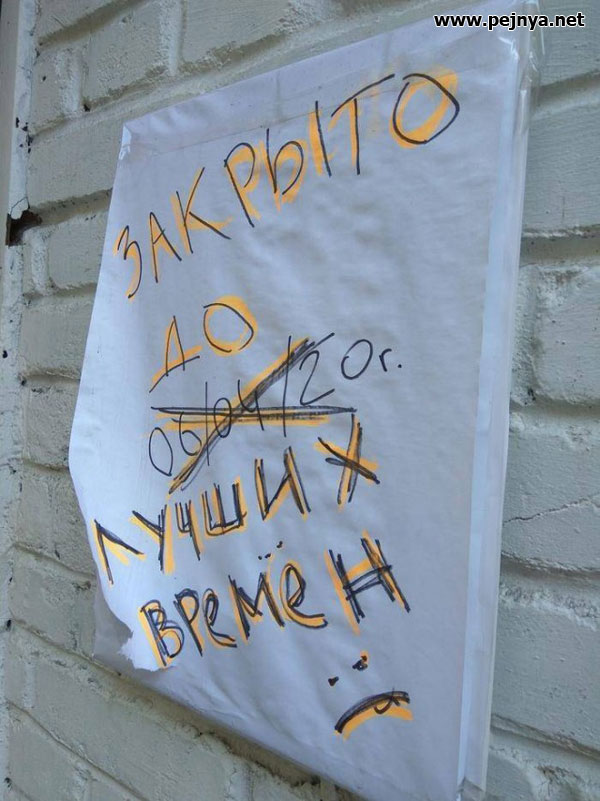 www.pejnya.net
ЗАКРЫТО
ДО
06/04/20г.
ЛУЧШИХ
ВРЕМЁН